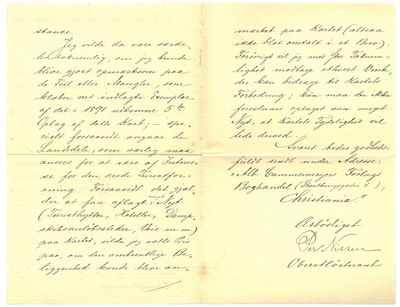 stande.
Jeg vilde da være særde-
les taknemlig, om jeg kunde
blive gjort opmærksom paa
de Feil eller Mangler, som
klæber ved indlagte Exemplar
af det i 1891 udkomne 5te
Oplag af dette Kart; — spe-
cielt forsaavidt angaar de
Landsdele, som særlig maa
ansees for at være af Interes-
se for den øede Turistfor-
ening. Forsaavidt det gjæl-
der at faa aflagt Nyt
(Turisthytter, Hoteller, Damp-
skibsanløbssteder, Veie m.m.)
paa Kartet, vilde jeg sætte Pris
paa, om den omtrentlige Be-
liggenhed kunde blive an-
mærket paa Kartet (altsaa
ikke blot omtalt i et Brev).
Forøvrigt vil jeg med stor Taknem-
lighed modtage ethvert Vink,
der kan bidrage til Kartets
Forbedring; kun maa der ikke
foreslaaes optaget saa meget
Nyt, at Kartets Tydelighed vil
lide derved.
Svaret bedes godheds-
fuldt sendt under Adresse:
"Alb. Cammermeyers Forlags
Boghandel
Kristiania."
Ærbødigst
Per Nissen
Oberstløitnant